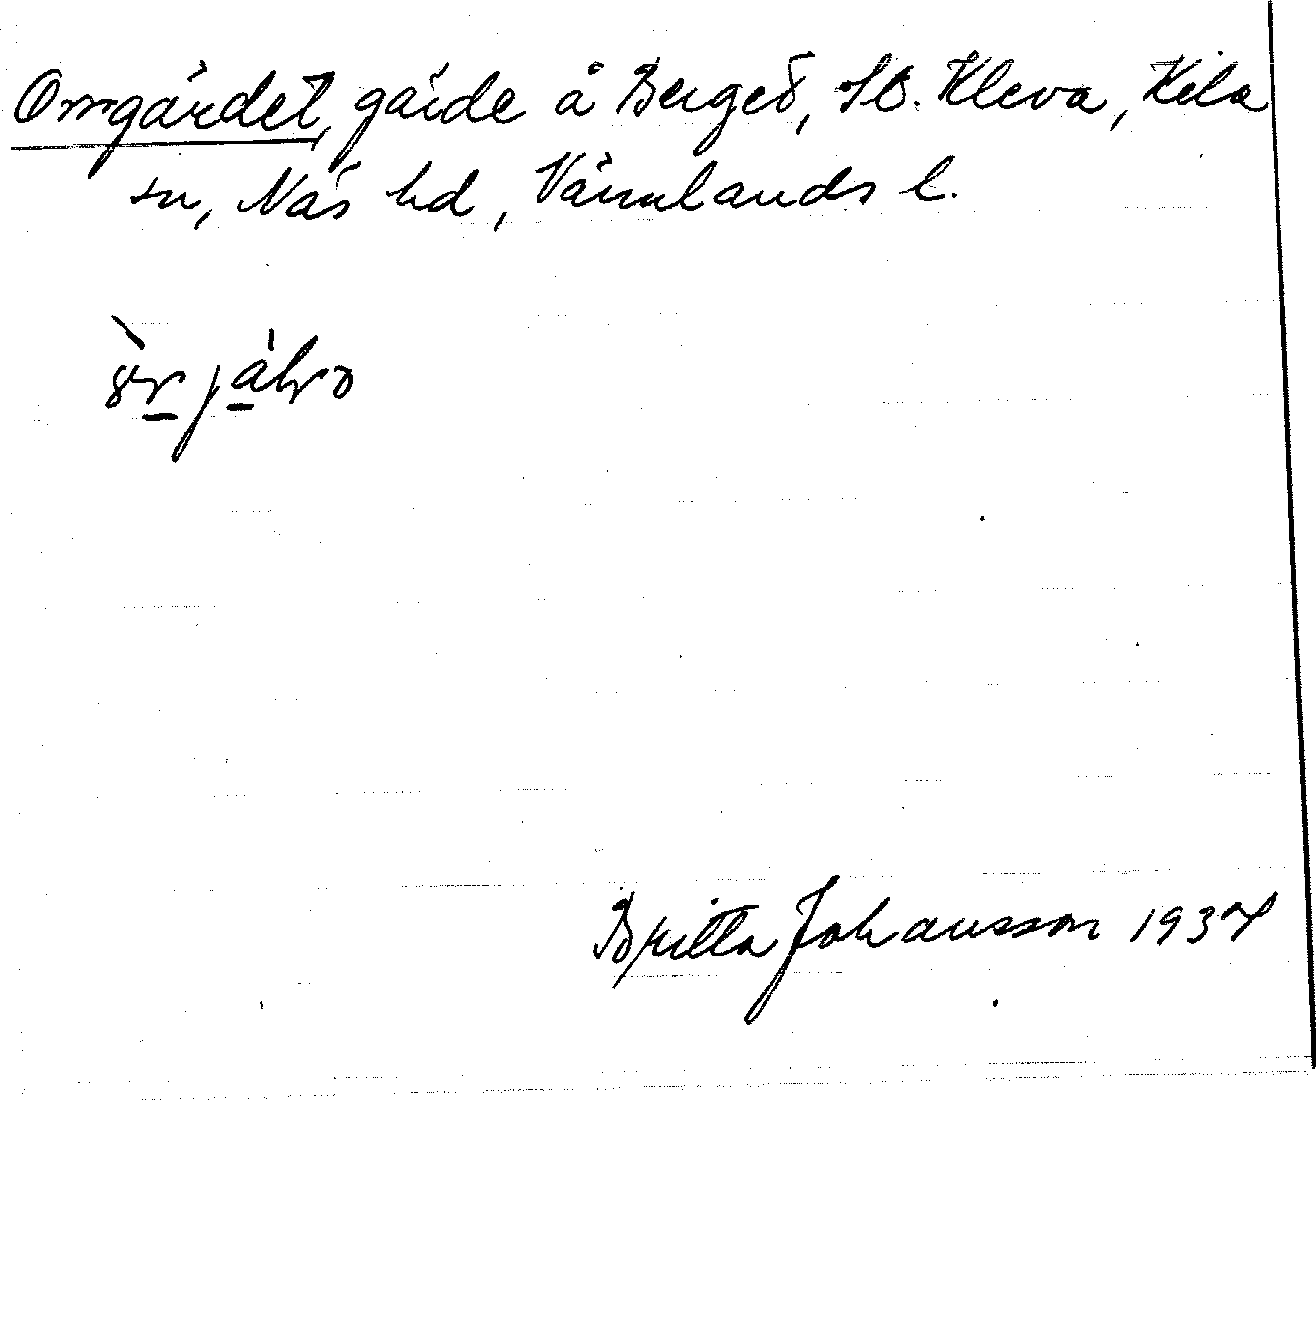 Omgärdet, gärde å Berget, St. Kleva, Kila
sn, Näs hd, Värmlands l.
Britta Johansson 1937